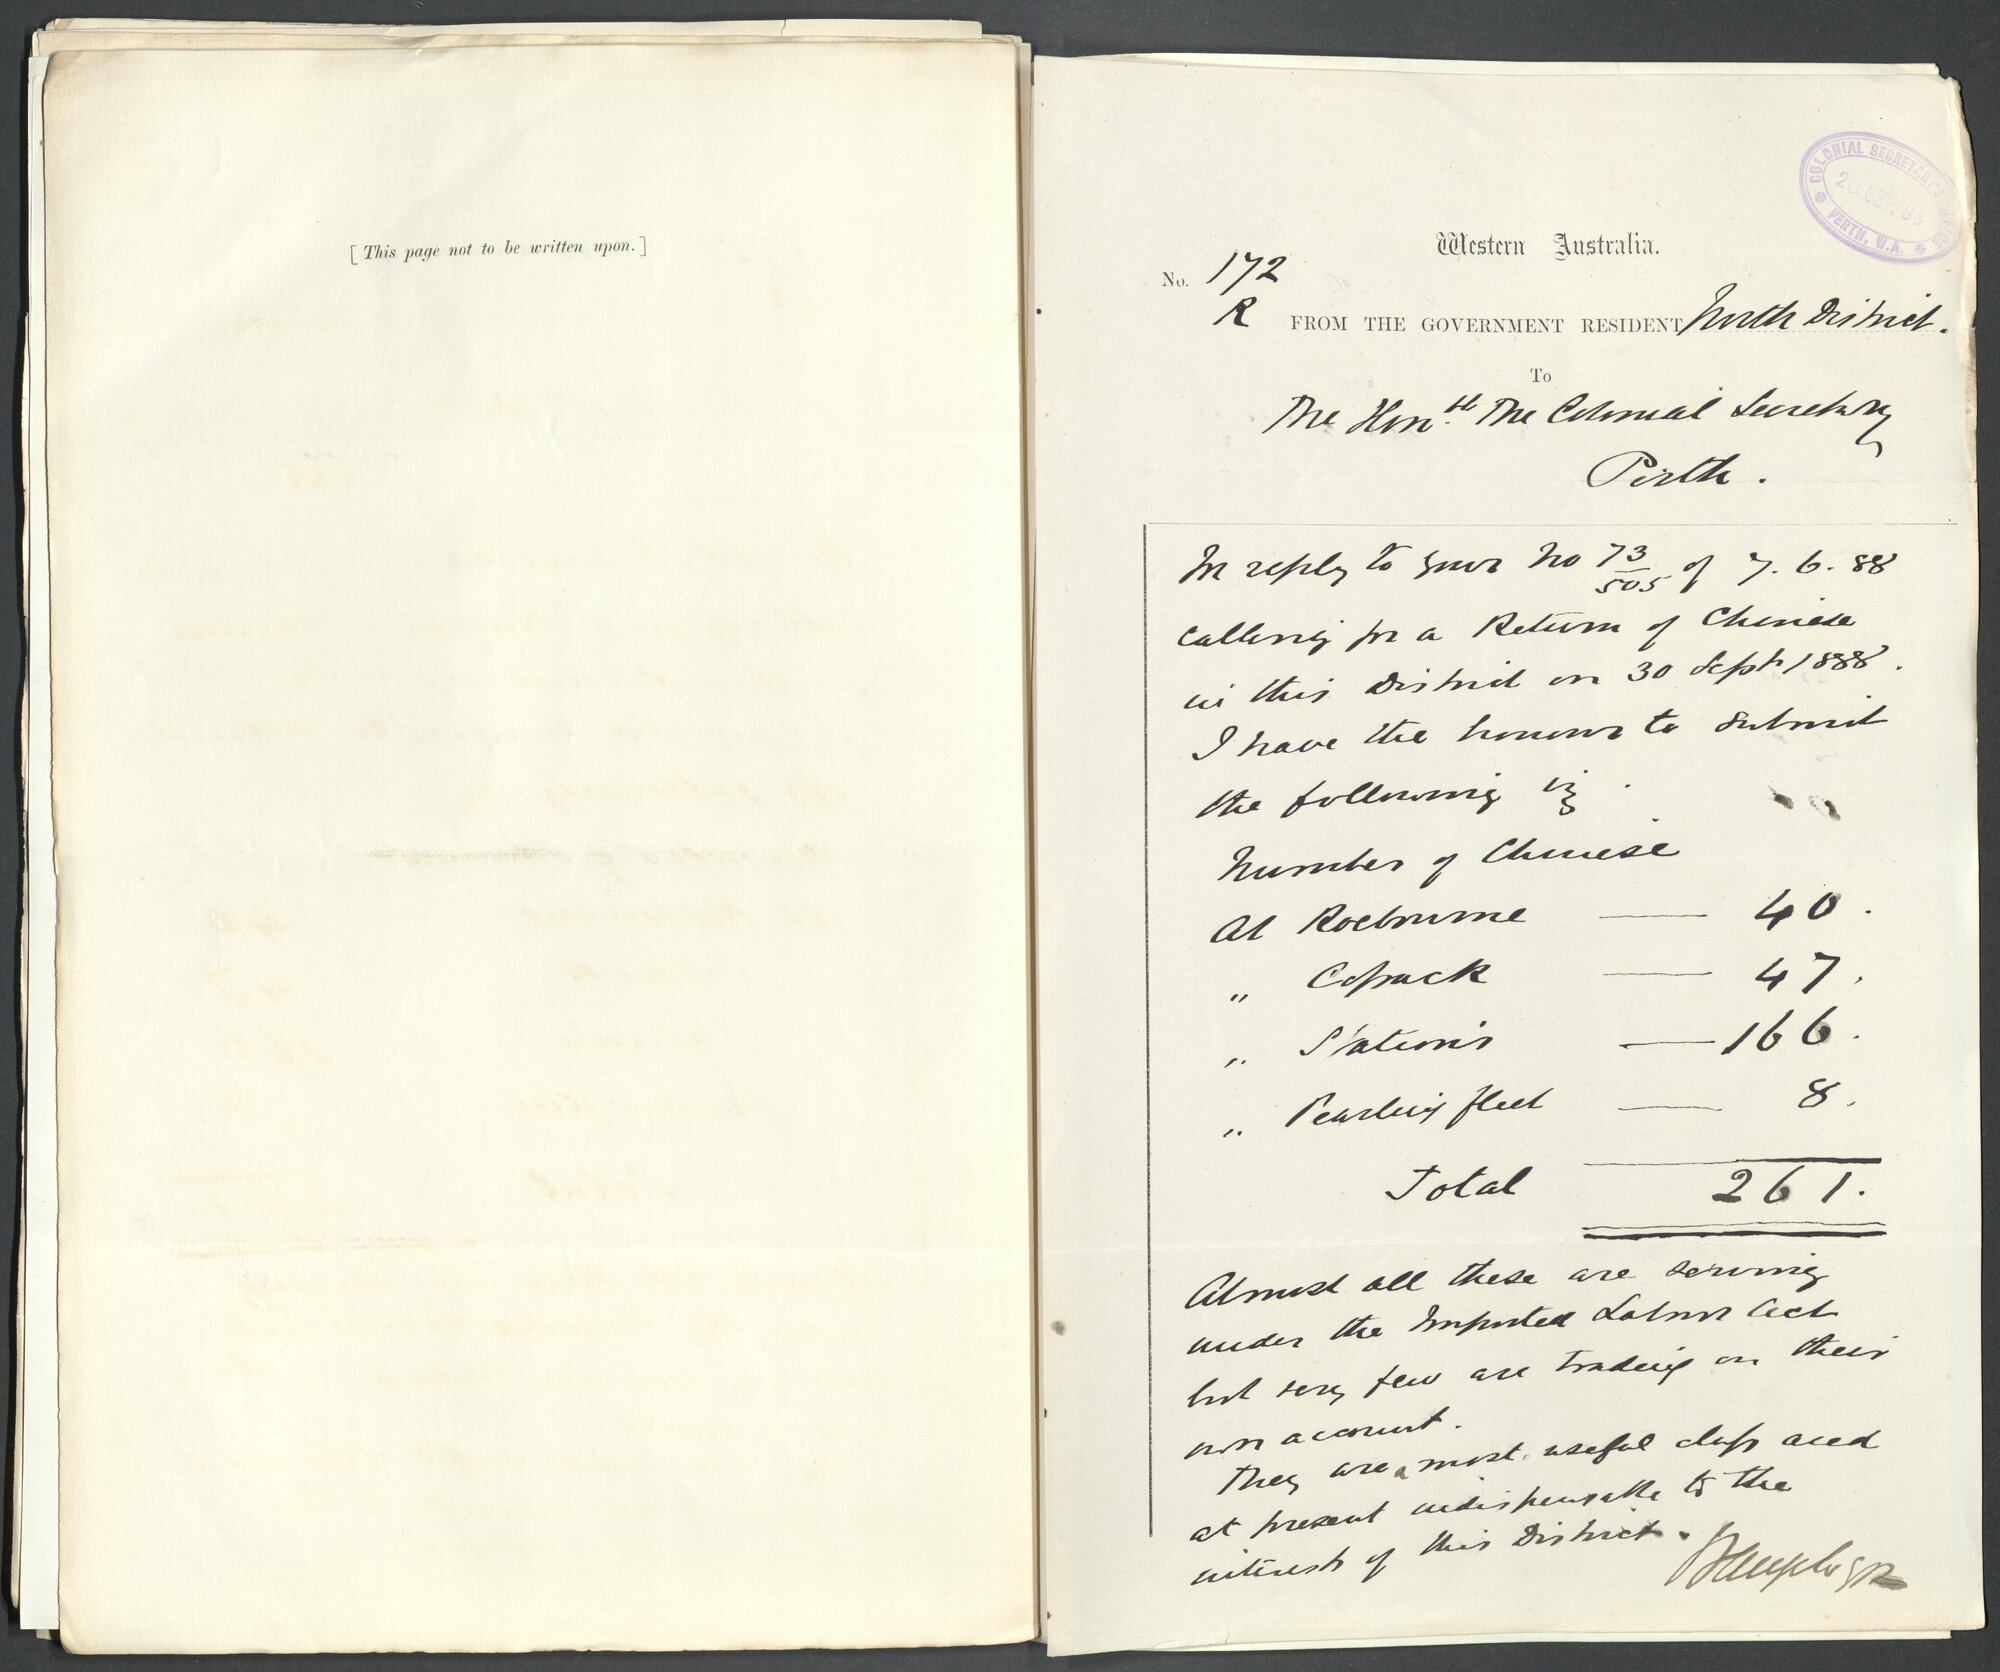 [ This page not to be written upon. ]
COLONIAL SECRETARY'S OFFICE
PERTH, W.A.
Western Australia.
No. 172
R
FROM THE GOVERNMENT RESIDENT North District.
To
The Honble. The Colonial Secretary
Perth.
In reply to your No 73/505 of 7.6.88
calling for a Return of Chinese
in this District on 30 Sept 1888.
I have the honour to submit
the following viz.
Number of Chinese
At Roebourne — 40.
" Cossack — 47.
" Stations — 166.
" Pearling fleet — 8.
Total 261.
Almost all these are serving
under the Imported Labour Act
but very few are trading on their
own account.
They are a most useful class and
at present indispensable to the
interests of this District.